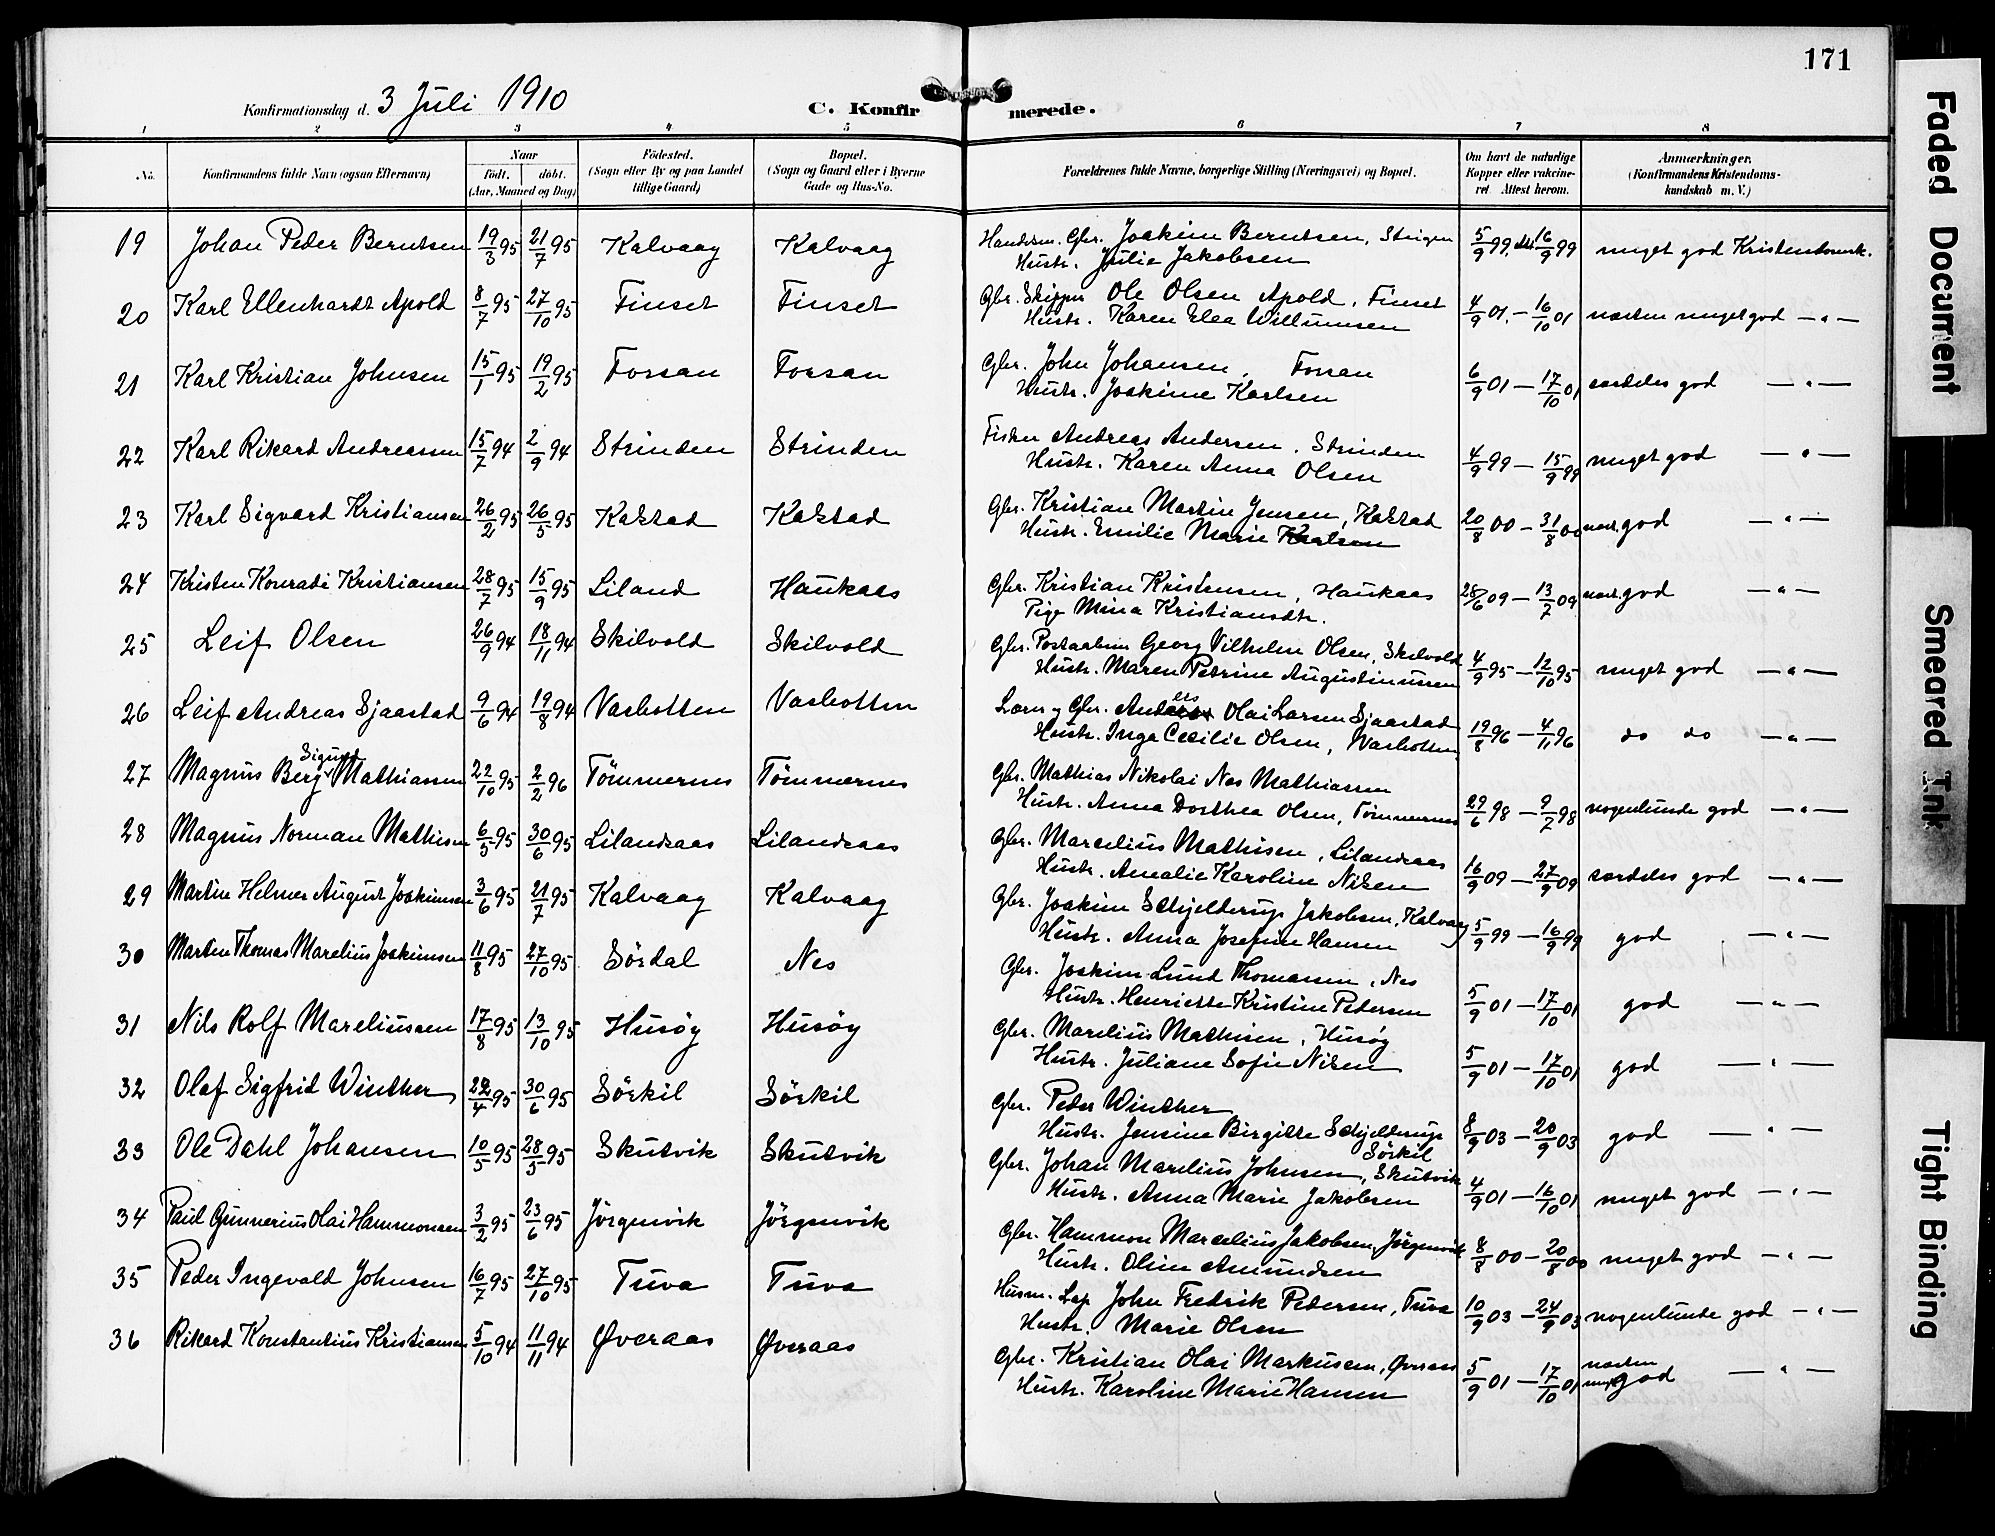 171
Konfirmationsdag d. 3 Juli 1910
C. Konfirmerede.
1 2 3 4 5 6 7 8
No. Konfirmandens fulde Navn (ogsaa Efternavn) Naar født. døbt. (Aar, Maaned og Dag) Fødested. (Sogn eller By og paa Landet tillige Gaard) Bopæl. (Sogn og Gaard eller i Byerne Gade og Hus-No. Forældrenes fulde Navne, borgerlige Stilling (Næringsvei) og Bopæl. Om havt de naturlige Kopper eller vakcineret. Attest herom. Anmærkninger. (Konfirmandens Kristendomskundskab m. V.)
19 Johan Peder Berntsen 19/3 95 21/7 95 Kalvaag Kalvaag Handelsm. Gbr. Joakim Berntsen, Steigen 5/9 99. att 16/9 99 meget god Kristendomsk.
Hustr. Julie Jakobsen
20 Karl Ellenhardt Apold 8/7 95 27/10 95 Finset Finset Gbr. Skipper Ole Olsen Apold, Finset 4/9 01. — 16/10 01 næsten meget god — " —
Hustr. Karen Elea Willumsen
21 Karl Kristian Johnsen 15/1 95 19/2 95 Forsan Forsan Gbr. John Johansen, Forsan 6/9 01 — 17/10 01 særdeles god — " —
Hustr. Joakime Karlsen
22 Karl Rikard Andreassen 15/7 94 2/9 94 Strinden Strinden Fisker Andreas Andersen, Strinden 4/9 99 — 15/9 99 meget god — " —
Hustr. Karen Anna Olsen
23 Karl Sigvard Kristiansen 26/2 95 26/5 95 Kakstad Kakstad Gbr. Kristian Martin Jensen, Kakstad 20/8 00 — 31/8 00 næst. god — " —
Hustr. Emilie Marie Karlsen
24 Kristen Konradi Kristiansen 28/7 95 15/9 95 Liland Haukaas Gbr. Kristian Kristensen, Haukaas 28/6 09 — 13/7 09 næst. god — " —
Pige Mina Kristiansdtr.
25 Leif Olsen 26/9 94 18/11 94 Skilvold Skilvold Gbr. Postaabner Georg Vilhelm Olsen, Skilvold 4/9 95 — 12/10 95 meget god — " —
Hustr. Maren Petrine Augustinussen
26 Leif Andreas Sjaastad 9/6 94 19/8 94 Vasbotten Vasbotten Lærer og Gbr. Anders Olai Larsen Sjaastad 19/8 96 — 4/11 96 do do — " —
Hustr. Inga Cecilie Olsen, Vasbotten
27 Magnus Berg Sigurd Mathiassen 22/10 95 2/2 96 Tömmernes Tömmernes Gbr. Mathias Nikolai Nes Mathiassen
Hustr. Anna Dorthea Olsen, Tömmernes 29/6 98 — 9/7 98 nogenlunde god — " —
28 Magnus Norman Mathisen 6/5 95 30/6 95 Lilandsaas Lilandsaas Gbr. Marcelius Mathisen, Lilandsaas
Hustr. Amalie Karoline Nilsen 16/9 09 — 27/9 09 særdeles god — " —
29 Martin Helmer August Joakimsen 3/6 95 21/7 95 Kalvaag Kalvaag Gbr. Joakim Schjelderup Jakobsen, Kalvaag 5/9 99 — 16/9 99 god — " —
Hustr. Anna Josefine Hansen
30 Martin Thomas Marelius Joakimsen 11/8 95 27/10 95 Sördal Nes Gbr. Joakim Lund Thomassen, Nes
Hustr. Henriette Kristine Pedersen 5/9 01 — 17/10 01 god — " —
31 Nils Rolf Mareliussen 17/8 95 13/10 95 Husöy Husöy Gbr. Marelius Mathisen, Husøy
Hustr. Juliane Sofie Nilsen 5/9 01 — 17/10 01 god — " —
32 Olaf Sigfrid Winther 22/4 95 30/6 95 Sörkil Sörkil Gbr. Peder Winther
Hustr. Jensine Birgitte Schjelderup Sörkil 8/9 03 — 20/9 03 god — " —
33 Ole Dahl Johansen 10/5 95 28/5 95 Skutvik Skutvik Gbr. Johan Marelius Johnsen, Skutvik 4/9 01 — 16/10 01 meget god — " —
Hustr. Anna Marie Jakobsen
34 Paul Gunnerius Olai Hammonsen 3/2 95 23/6 95 Jörgenvik Jörgenvik Gbr. Hammon Marcelius Jakobsen, Jörgenvik 8/8 00 — 20/8 00 meget god — " —
Hustr. Oline Amundsen
35 Peder Ingevald Johnsen 16/7 95 27/10 95 Tuva Tuva Husm. Lap John Fredrik Pedersen, Tuva 10/9 03 — 24/9 03 nogenlunde god — " —
Hustr. Marie Olsen
36 Rikard Konstantius Kristiansen 5/10 94 11/11 94 Øveraas Øveraas Gbr. Kristian Olai Markussen, Øveraas 5/9 01 — 17/10 01 næsten meget god — " —
Hustr. Karoline Marie Hansen
Faded Document
Smeared Ink
Tight Binding